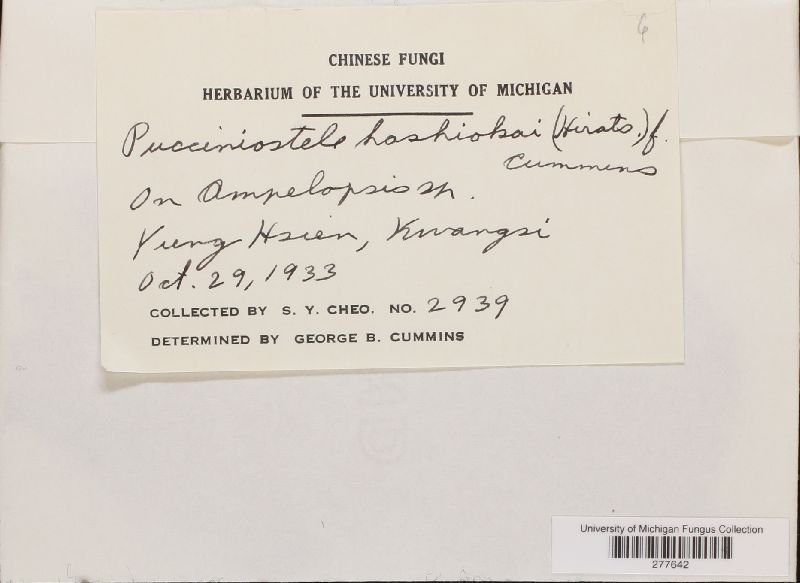 6
CHINESE FUNGI
HERBARIUM OF THE UNIVERSITY OF MICHIGAN
Pucciniostele hashiokai (Hirats.) f.
Cummins
On Ampelopsis sp.
Yung Hsien, Kwangsi
Oct. 29, 1933
COLLECTED BY S. Y. CHEO. NO. 2939
DETERMINED BY GEORGE B. CUMMINS
University of Michigan Fungus Collection
277642